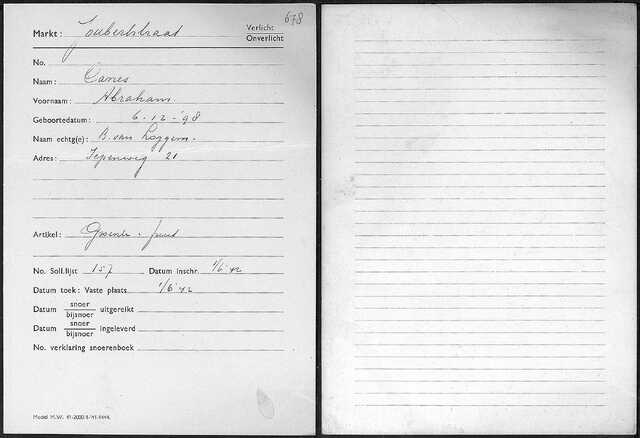 678
Markt: Joubertstraat
Verlicht
Onverlicht
No.
Naam: Canes
Voornaam: Abraham.
Geboortedatum: 6-12-'98
Naam echtg(e): B. van Loggem.
Adres: Iepenweg 21
Artikel: Groente - fruit
No. Soll.lijst 157 Datum inschr. 1/6 '42
Datum toek: Vaste plaats 1/6 '42
Datum snoer bijsnoer uitgereikt
Datum snoer bijsnoer ingeleverd
No. verklaring snoerenboek